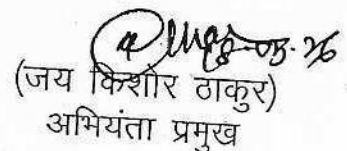 (जय किशोर ठाकुर)
अभियंता प्रमुख